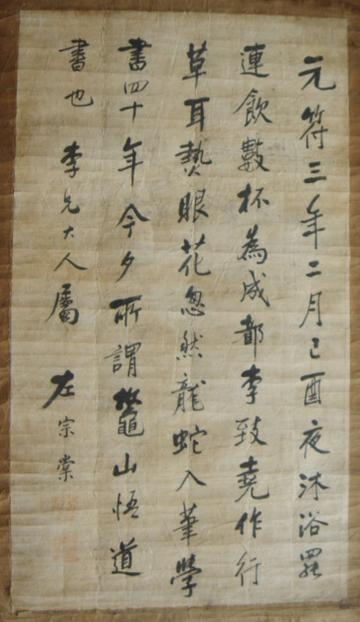 元符三年二月己酉夜沐浴罷
連飲數杯為成都李致堯作行
草耳熱眼花忽然龍蛇入筆學
書四十年今夕所謂鰲山悟道
書也 李兄大人屬 左宗棠